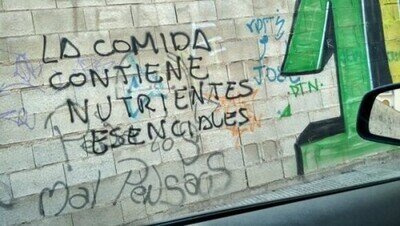 LA COMIDA
CONTIENE
NUTRIENTES
ESENCIALES
Mal Pensaos
JOSE